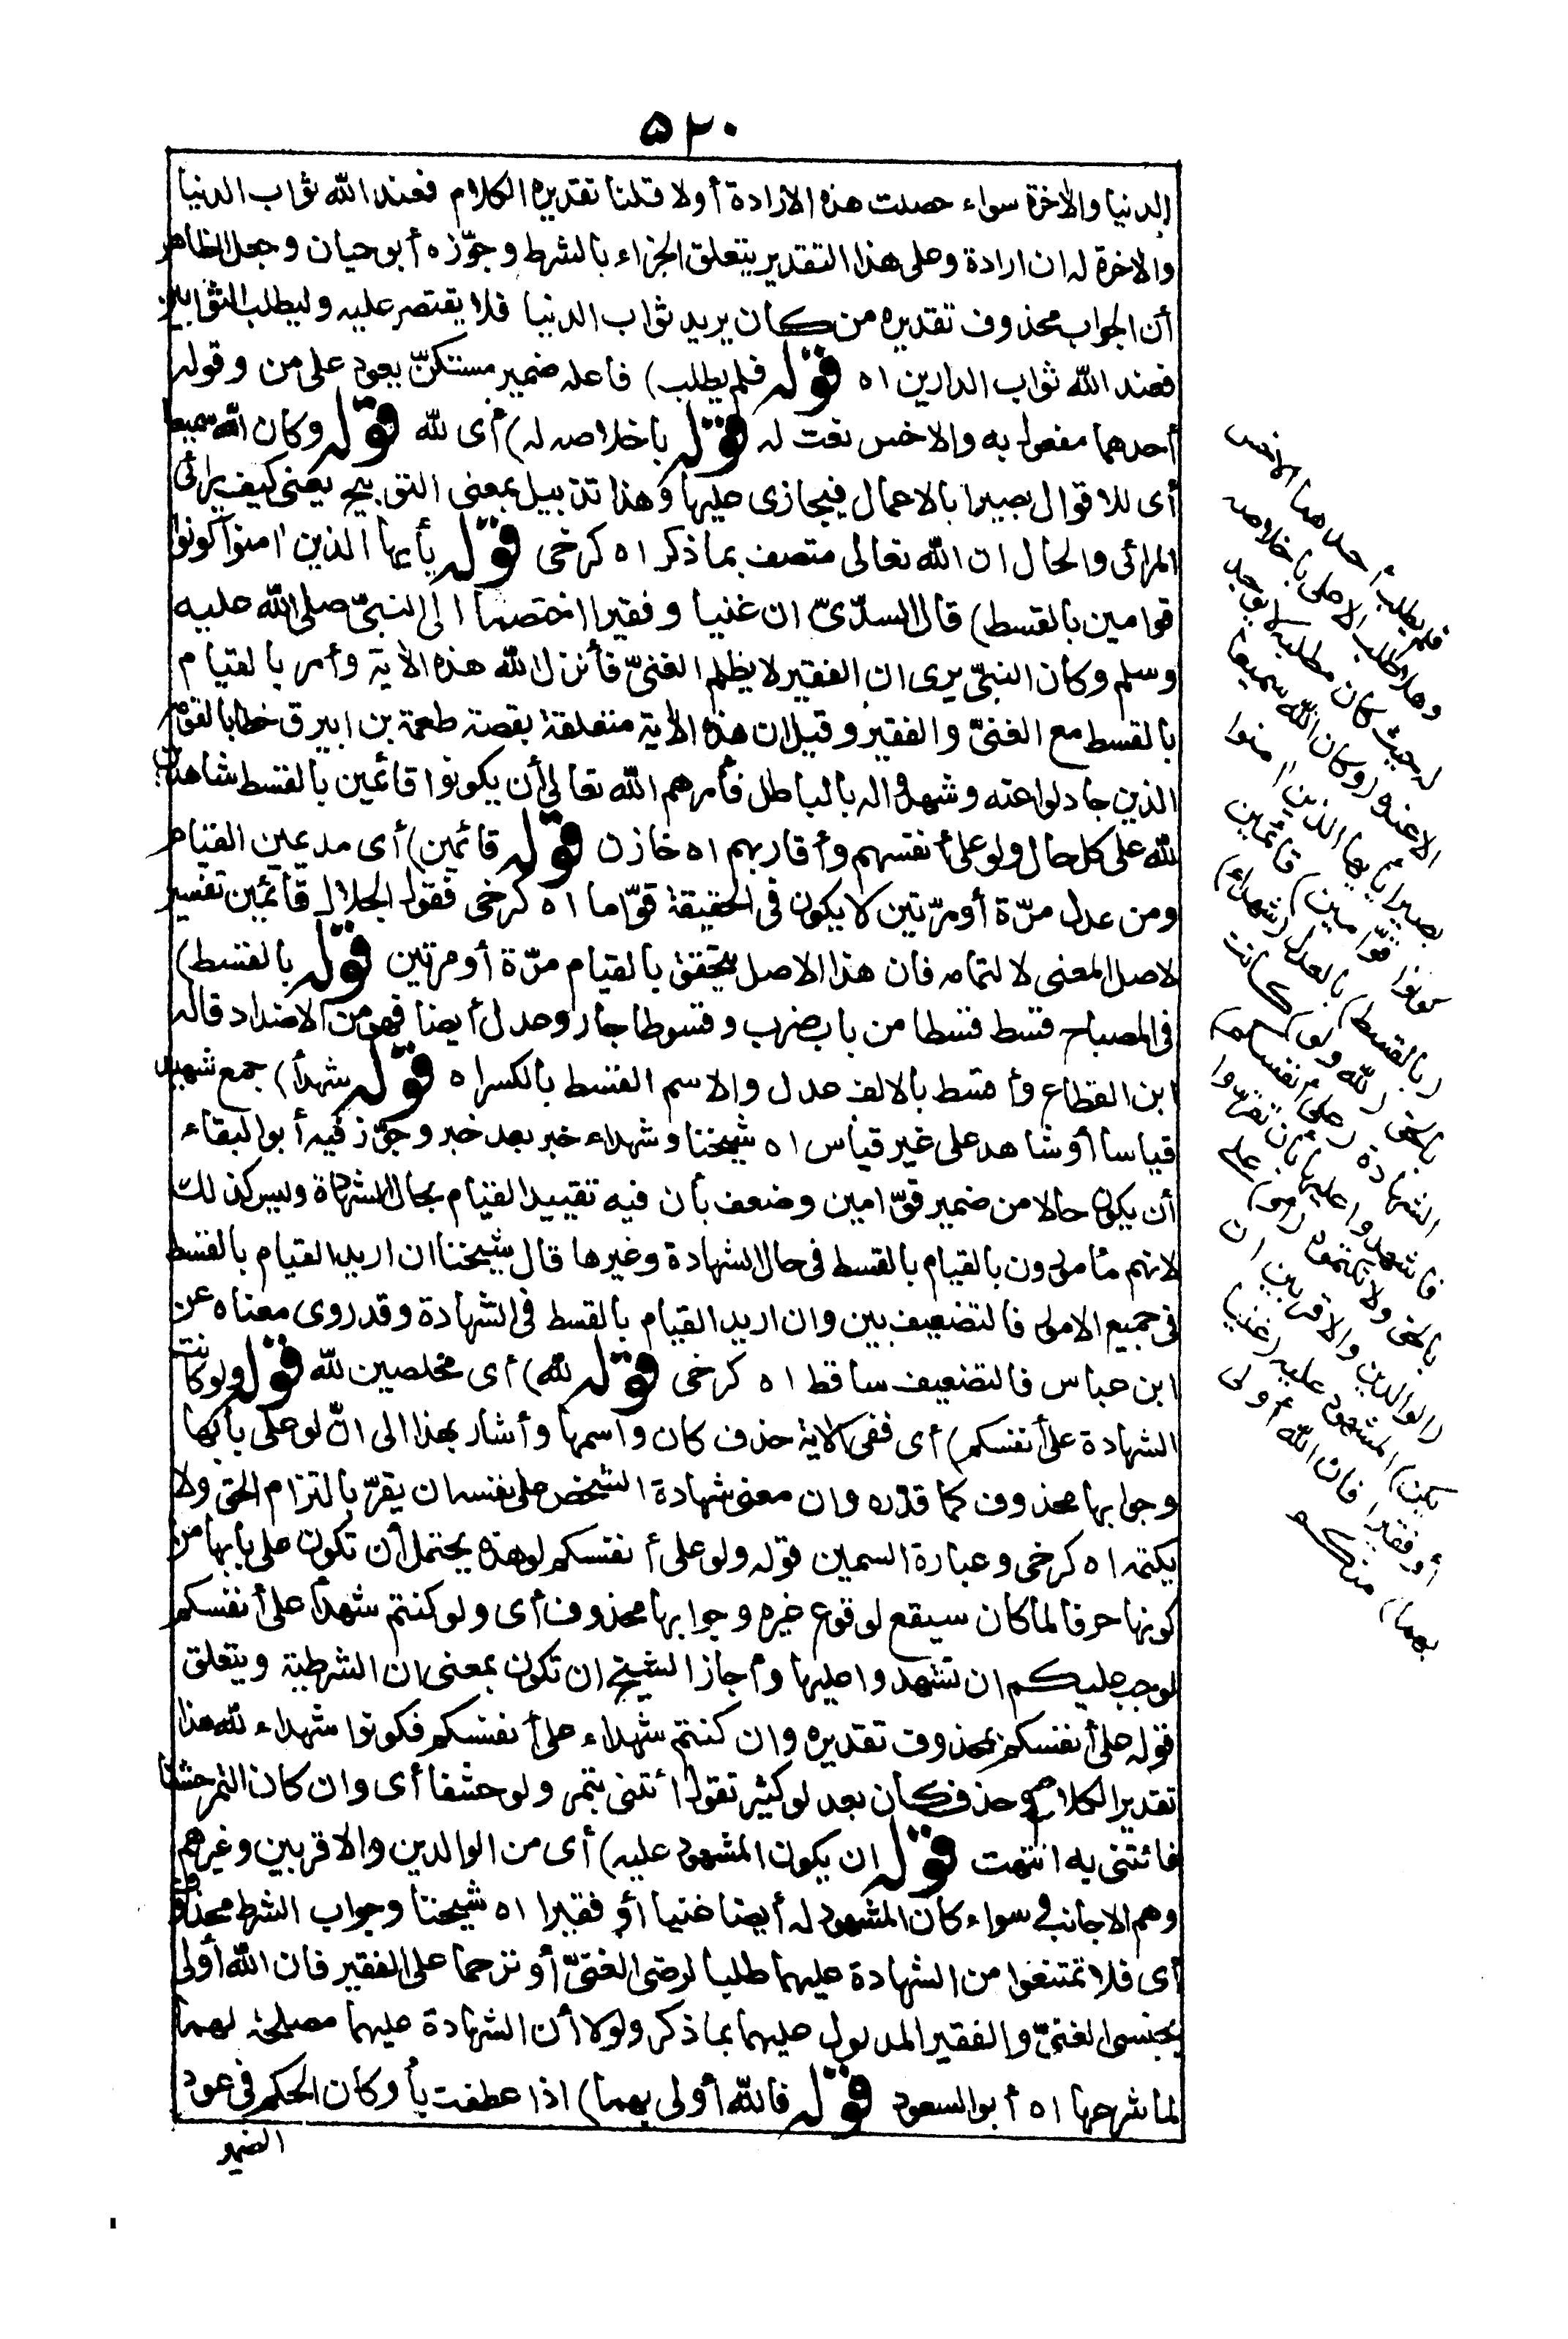 ٥٢٠
الدنيا والاخرة سواء حصلت هذه الارادة أولا قلنا تقدير الكلام فعند الله ثواب الدنيا
والاخرة له ان اراده وعلى هذا التقدير يتعلق الجزاء بالشرط وجوّزه أبو حيان وجعل الظاهر
أن الجواب محذوف تقديره من كان يريد ثواب الدنيا فلا يقتصر عليه وليطلب الثوابين
فعند الله ثواب الدارين اه قوله فلم يطلب) فاعله ضمير مستكنّ يعود على من وقوله
أحدهما مفعول به والاخس نعت له قوله باخلاصه له) أى لله قوله وكان الله سميعا
أى للاقوال بصيرا بالاعمال فيجازى عليها وهذا تذييل بمعنى التوبيخ يعنى كيف يرائى
المرائى والحال ان الله تعالى متصف بما ذكر اه كرخى قوله يأيها الذين امنوا كونوا
قوامين بالقسط) قال السدّىّ ان غنيا وفقيرا اختصما الى النبىّ صلى الله عليه
وسلم وكان النبىّ يرى ان الفقير لا يظلم الغنىّ فأنزل الله هذه الأية وأمر بالقيام
بالقسط مع الغنىّ والفقير وقيل ان هذه الأية متعلقة بقصة طعمة بن ابيرق خطابا لقومه
الذين جادلوا عنه وشهدوا له بالباطل فأمرهم الله تعالى أن يكونوا قائمين بالقسط شاهدين
لله على كل حال ولو على أنفسهم وأقاربهم اه خازن قوله قائمين) أى مديمين القيام
ومن عدل مرّة أو مرّتين لا يكون فى الحقيقة قوّاما اه كرخى فقول الجلال قائمين تفسير
لاصل المعنى لا لتمامه فان هذا الاصل يتحقق بالقيام مرّة أو مرتين قوله بالقسط)
فى المصباح قسط قسطا من باب ضرب وقسوطا جار وعدل أيضا فهو من الاضداد قاله
ابن القطاع وأقسط بالالف عدل والاسم القسط بالكسر اه قوله شهدآ) جمع شهيد
قياسا أو شاهد على غير قياس اه شيخنا وشهداء خبر بعد خبر وجوّز فيه أبو البقاء
أن يكون حالا من ضمير قوّامين وضعف بأن فيه تقييد القيام بحال الشهادة وليس كذلك
لانهم مأمورون بالقيام بالقسط فى حال الشهادة وغيرها قال شيخنا ان اريد القيام بالقسط
فى جميع الامور فالتضعيف بين وان اريد القيام بالقسط فى الشهادة وقد روى معناه عن
ابن عباس فالتضعيف ساقط اه كرخى قوله لله) أى مخلصين لله قوله ولو كانت
الشهادة على أنفسكم) أى ففى الاية حذف كان واسمها وأشار بهذا الى انّ لو على بأبها
وجوابها محذوف كما قدّره وان معنى شهادة الشخص على نفسه ان يقرّ بالتزام الحق ولا
يكتمه اه كرخى وعبارة السمين قوله ولو على أنفسكم لو هذه يحتمل أن تكون على بأبها من
كونها حرفا لما كان سيقع لوقوع غيره وجوابها محذوف أى ولو كنتم شهدآ على أنفسكم
لوجب عليكم ان تشهدوا عليها وأجاز الشيخ ان تكون بمعنى ان الشرطية ويتعلق
قوله على أنفسكم بمحذوف تقديره وان كنتم شهداء على أنفسكم فكونوا شهداء لله هذا
تقدير الكلام وحذف كان بعد لو كثير تقول ائتنى بتمر ولو حشفا أى وان كان التمر حشفا
فائتنى به انتهت قوله ان يكون المشهود عليه) أى من الوالدين والاقربين وغيرهم
وهم الاجانب سواء كان المشهود له أيضا غنيا أو فقيرا اه شيخنا وجواب الشرط محذوف
أى فلا تمتنعوا من الشهادة عليهما طلبا لرضى الغنىّ أو ترحما على الفقير فان الله أولى
بجنسى الغنىّ والفقير المدلول عليهما بما ذكر ولولا أن الشهادة عليهما مصلحة لهما
لما شرعها اه أبو السعود قوله فالله أولى بهما) اذا عطفت بأو كان الحكم فى عود
الضمير
فلم يطلب أحدهما الاخس
وهلا طلب الاعلى باخلاصه
له حيث كان مطلبه لا يوجد
الا عنده (وكان الله سميعا
بصيرا يأيها الذين امنوا
كونوا قوّامين) قائمين
(بالقسط) بالعدل (شهداء)
بالحق (لله ولو) كانت
الشهادة (على أنفسكم)
فاشهدوا عليها بأن تقرّوا
بالحق ولا تكتموه (أو) على
(الوالدين والاقربين ان
يكن) المشهود عليه (غنيا
أو فقيرا فالله أولى
بهما) منكم